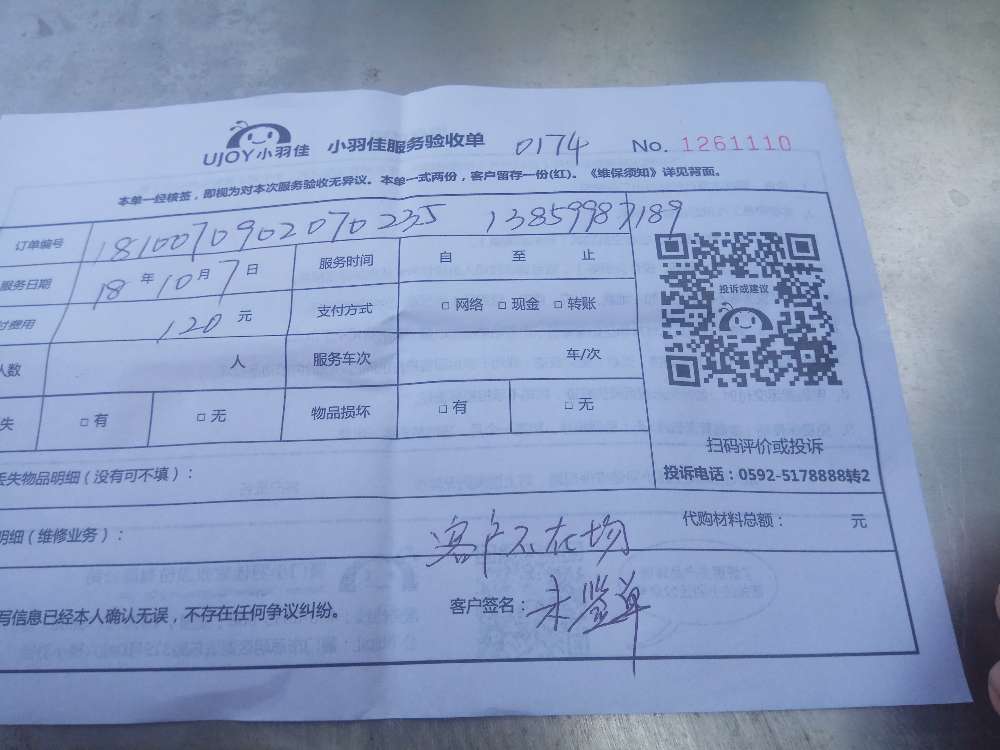 UJOY小羽佳 小羽佳服务验收单 0174 No. 1261110
本单一经核签，即视为对本次服务验收无异议。本单一式两份，客户留存一份(红)。《维保须知》详见背面。
订单编号 1810070902070235 13859983189
服务日期 18 年 10 月 7 日 服务时间 自 至 止
付费用 120 元 支付方式 □ 网络 □ 现金 □ 转账
人数 人 服务车次 车/次
失 □ 有 □ 无 物品损坏 □ 有 □ 无
投诉或建议
扫码评价或投诉
投诉电话：0592-5178888转2
丢失物品明细（没有可不填）：
明细（维修业务）： 客户不在场 代购材料总额： 元
写信息已经本人确认无误，不存在任何争议纠纷。 客户签名： 未签单